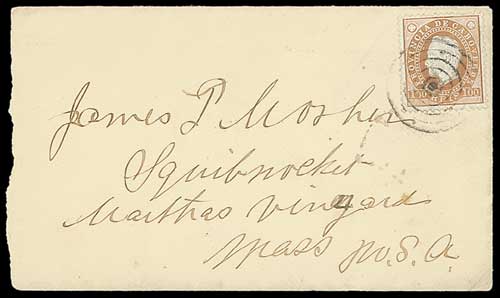 PROVINCIA DE CABO
100 100
James P Mosher
Squibnocket
Marthas Vinyard
Mass U.S.A.